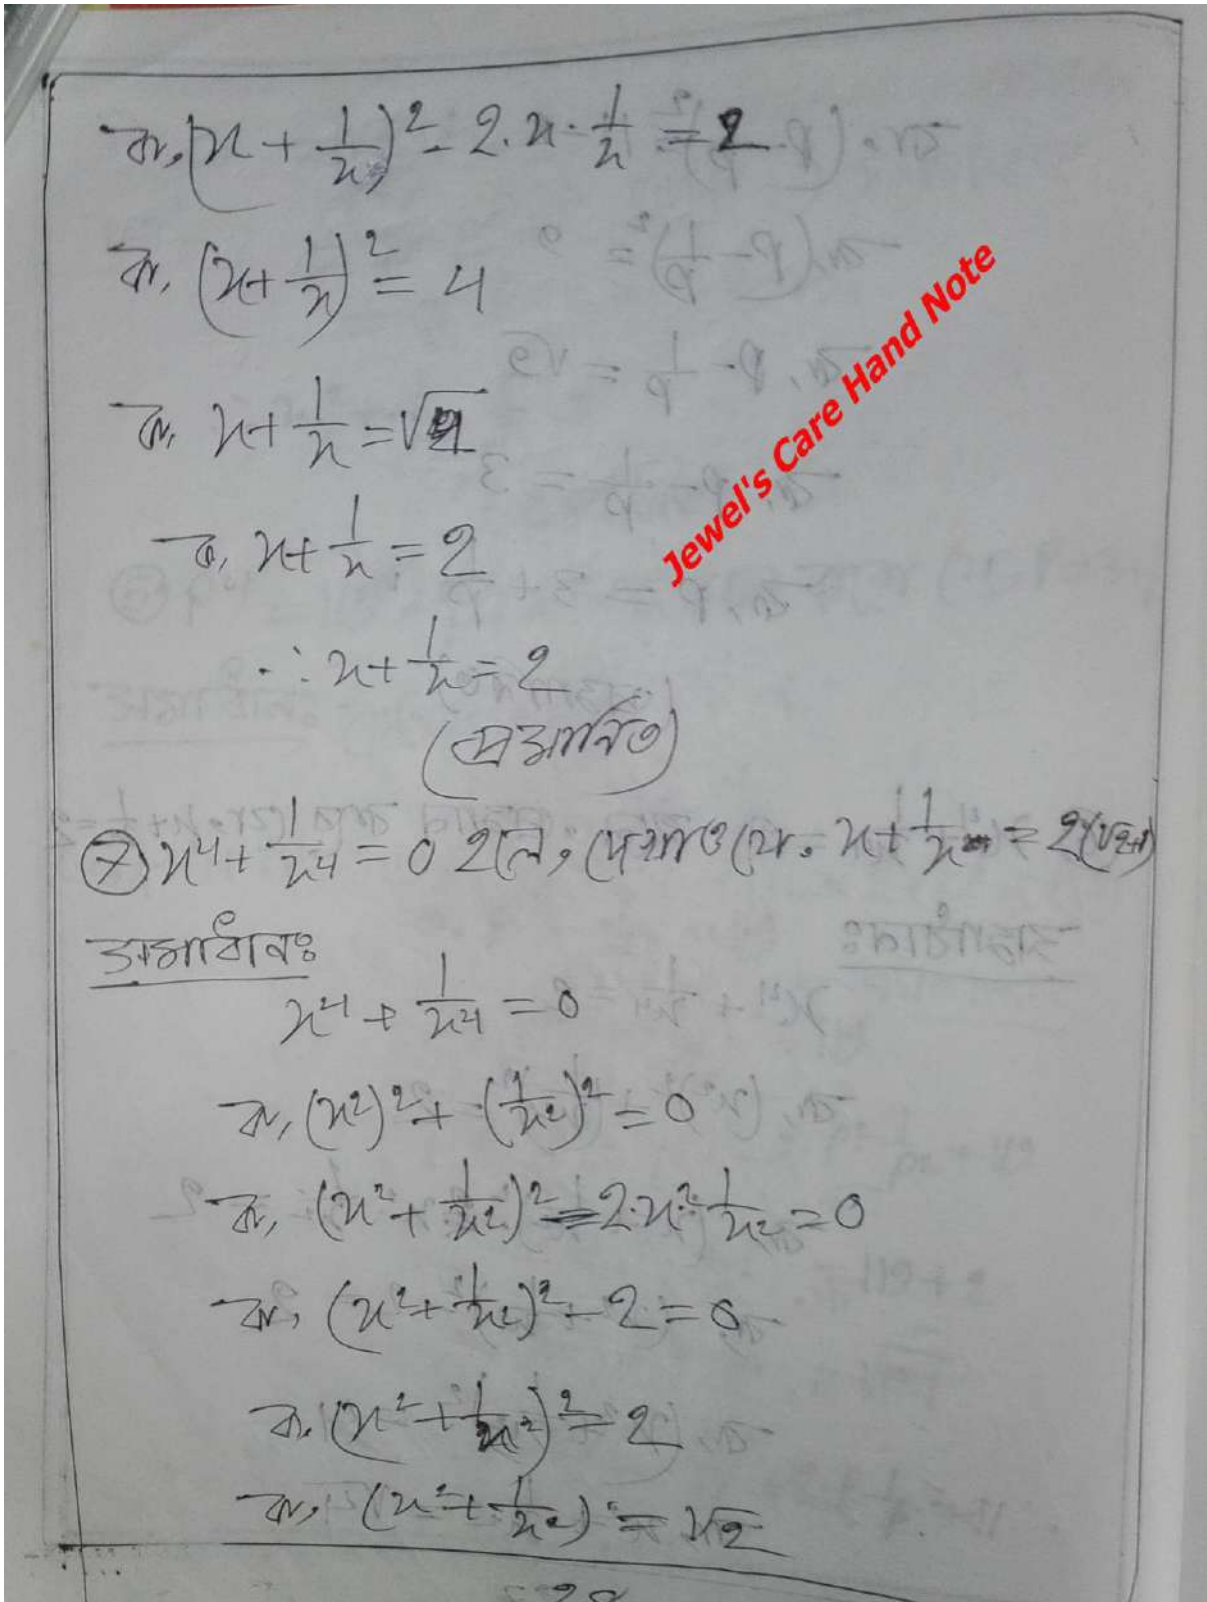 বা, (x + 1/x)² - 2.x.1/x = 2
বা, (x + 1/x)² = 4
বা, x + 1/x = √4
বা, x + 1/x = 2
∴ x + 1/x = 2
(প্রমাণিত)
Jewel's Care Hand Note
⑦ x⁴ + 1/x⁴ = 0 হলে, দেখাও যে, x + 1/x = 2(√2+1)
সমাধানঃ
x⁴ + 1/x⁴ = 0
বা, (x²)² + (1/x²)² = 0
বা, (x² + 1/x²)² - 2.x².1/x² = 0
বা, (x² + 1/x²)² - 2 = 0
বা, (x² + 1/x²)² = 2
বা, (x² + 1/x²) = √2